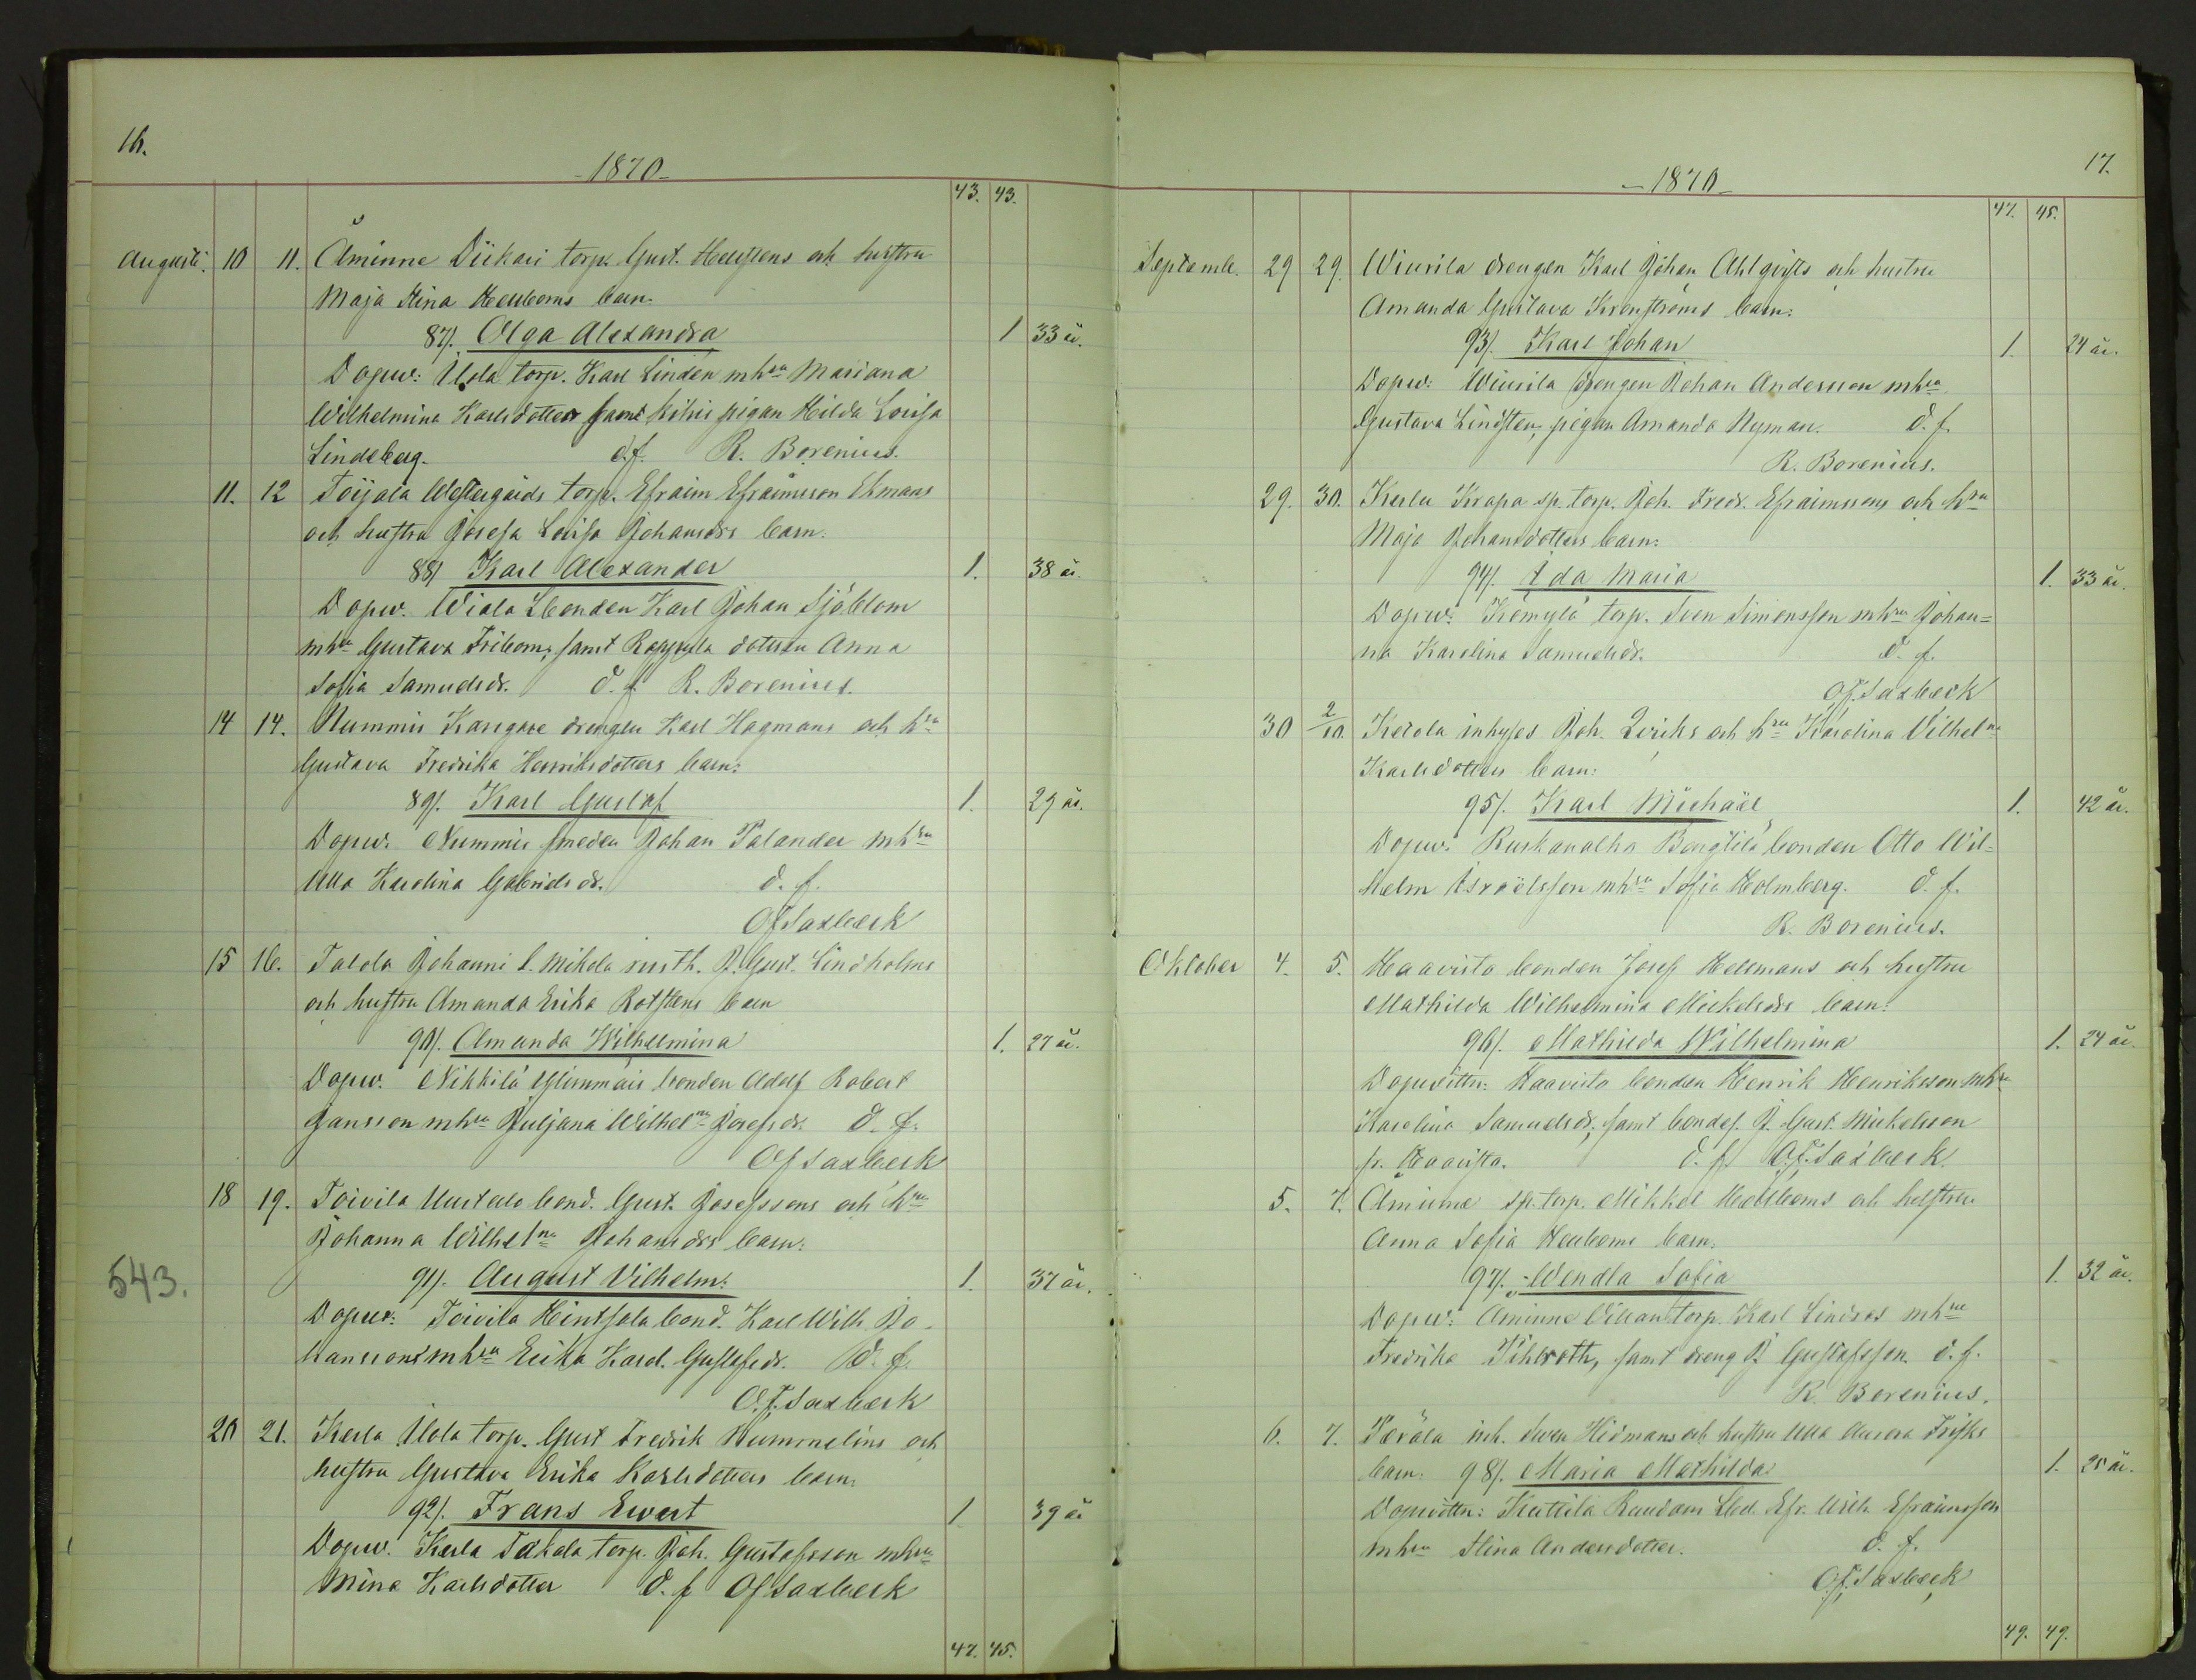 16.
-1870-
43. 43.
Augusti. 10 11. Åminne Diikari torp. Gust. Hellstens och hustru
Maja Stina Hellboms barn.
87). Olga Alexandra 1 33 år.
Dopw: Ulola torp. Karl Lindén mhru Mariana
Wilhelmina Karlsdotter samt pigan Hilda Lovisa
Lindeberg. d.f. R. Borenius.
11. 12 Toijala Westergårds torp. Efraim Efraimsson Ekmans
och hustru Josefa Lovisa Johansdrs barn.
88) Karl Alexander 1. 38 år.
Dopw. Wiala bonden Karl Johan Sjöblom
mhru Gustava Fribom, samt dottren Anna
Sofia Samuelsdr. d.f. R. Borenius.
14 14. Nummis Kangare drengen Karl Hagmans och hru
Gustava Fredrika Henriksdotters barn:
89). Karl Gustaf 1. 29 år.
Dopw. Nummis smeden Johan Palander mhru
Ulla Karolina Gabrielsdr. d.f.
O.F. Saxbäck
15 16. Talola Johanni l. Mikola rusth. J. Gust. Lindholms
och hustru Amanda Erika Rotstens barn
90). Amanda Wilhelmina 1. 27 år.
Dopw. Nikkilä Ylimmäis bonden Adolf Robert
Jansson mhru Juljana Wilhelna Josefsdr. d.f.
O.F. Saxbäck
18 19. Toivila Uustalo bond. Gust. Josefssons och hru
Johanna Wilhelna Johansdrs barn:
543.
91). August Vilhelm. 1. 37 år.
Dopw: Toivila Heintsala bond. Karl Wilh. Jo-
hanssons mhru Erika Karol. Gustafsdr. d.f.
O.F. Saxbäck
20 21. Kerla Ulola torp. Gust Fredrik Hummelins och
hustru Gustava Erika Karlsdotters barn.
92). Frans Evert 1 39 år
Dopw. Kerla Takala torp. Joh. Gustafsson mhru
Mina Karlsdotter d.f. O.F. Saxbäck
47. 45.
17.
-1870-
47. 45.
Septemb. 29 29. Wiurila drengen Karl Johan Ahlqvists och hustru
Amanda Gustava Kronströms barn:
93). Karl Johan 1. 24 år.
Dopw: Wiurila drengen Johan Andersson mhru
Gustava Lindsten, pigan Amanda Nyman. d.f.
R. Borenius.
29. 30. Kerla Krapa sp. torp. Joh. Fredr. Efraimssons och hru
Maja Johansdotters barn:
94). Ida Maria 1. 33 år.
Dopw: Kemylä torp. Sven Simonsson mhru Johan=
na Karolina Samuelsdr. d.f.
O.F. Saxbäck
30 2/10. Ketola inhyses Joh. Qviks och hru Karolina Vilhelna
Karlsdotters barn:
95). Karl Michäel 1. 42 år.
Dopw. Ruskanalho Bengtilä bonden Otto Wil=
helm Israëlsson mhru Sofia Holmberg. d.f.
R. Borenius.
Oktober 4. 5. Haavisto bonden Josef Hellmans och hustru
Mathilda Wilhelmina Mickelsdrs barn:
96). Mathilda Wilhelmina 1. 24 år.
Dopvittn: Haavisto bonden Henrik Henriksson mhru
Karolina Samuelsdr, samt bondes. J. Gust. Mickelsson
fr. Haavisto. d.f. O.F. Saxbäck.
5. 7. Åminne sp. torp. Mikkel Hellboms och hustru
Anna Sofia Hellboms barn.
97). Wendla Sofia 1. 32 år.
Dopw: Åminne torp. Karl Lindros mhru
Fredrika Tihlroth, samt dreng J. Gustafsson. d.f.
R. Borenius.
6. 7. Terälä inh. Sven Hidmans och hustru Ulla Aurora Frisks
barn. 98). Maria Mathilda: 1. 25 år.
Dopvittn: Kuttila bd. Efr. Wilh. Efraimsson
mhru Stina Andersdotter. d.f.
O.F. Saxbäck
49. 49.